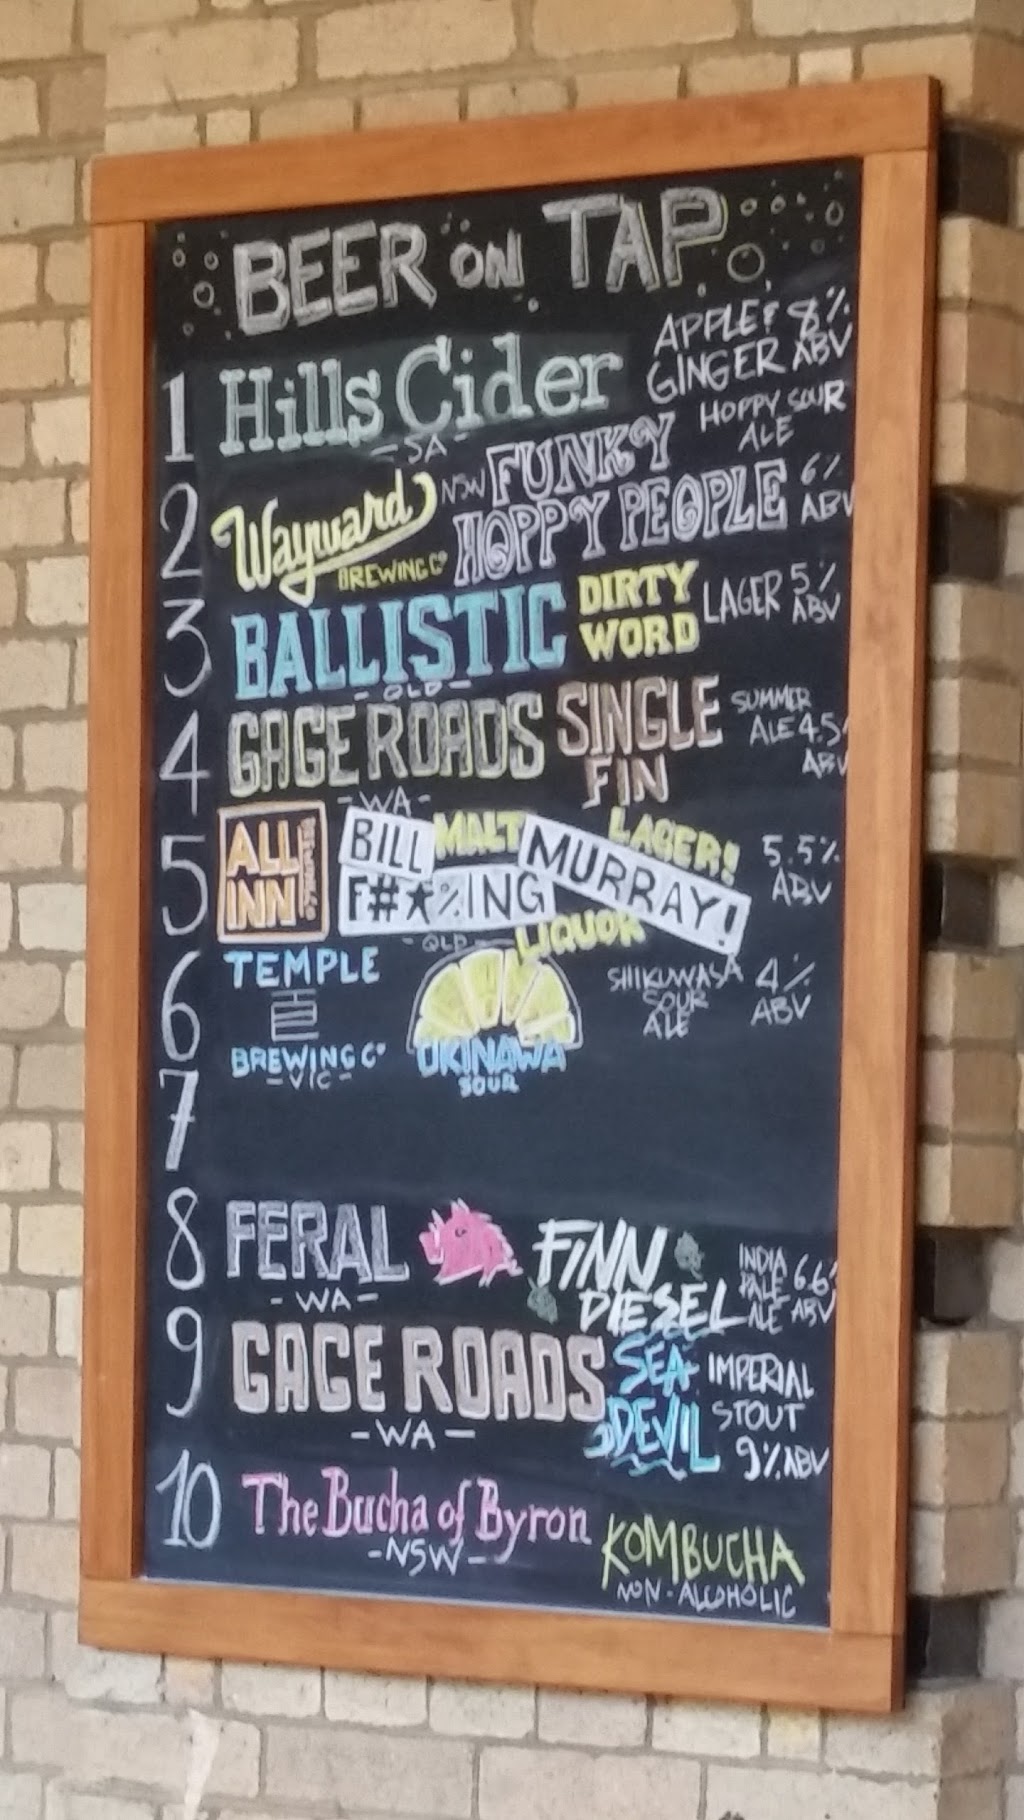 BEER ON TAP
1 Hills Cider APPLE & GINGER 8% ABV
- SA -
2 Wayward BREWING Cº NSW FUNKY HOPPY PEOPLE HOPPY SOUR ALE 6% ABV
3 BALLISTIC DIRTY WORD LAGER 5% ABV
- QLD -
4 GAGE ROADS SINGLE FIN SUMMER ALE 4.5% ABV
- WA -
5 ALL INN BILL F#*%ING MURRAY! MALT LAGER! LIQUOR 5.5% ABV
- QLD -
6 TEMPLE BREWING Cº OKINAWA SOUR SHIKUWASA SOUR ALE 4% ABV
- VIC -
7
8 FERAL FINN DIESEL INDIA PALE ALE 6.6% ABV
- WA -
9 GAGE ROADS SEA DEVIL IMPERIAL STOUT 9% ABV
- WA -
10 The Bucha of Byron KOMBUCHA
- NSW - NON-ALCOHOLIC